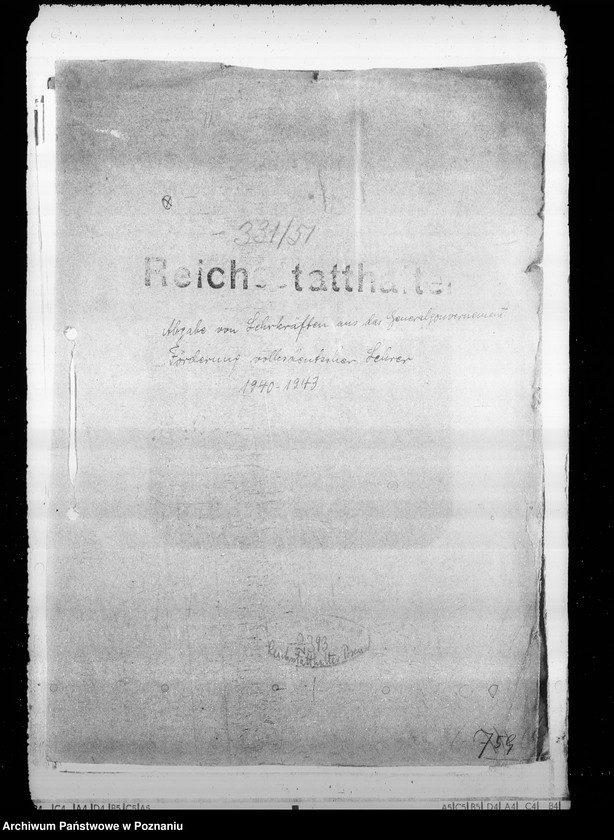 331/51
Reichsstatthalter
Abgabe von Lehrkräften aus das Generalgouvernement
Förderung volksdeutscher Lehrer
1940-1943
2393
Reichsstatthalter Posen
759
C4 A4 D4 B5 C5 A5
A5 C5 B5 D4 A4 C4 B4
Archiwum Państwowe w Poznaniu